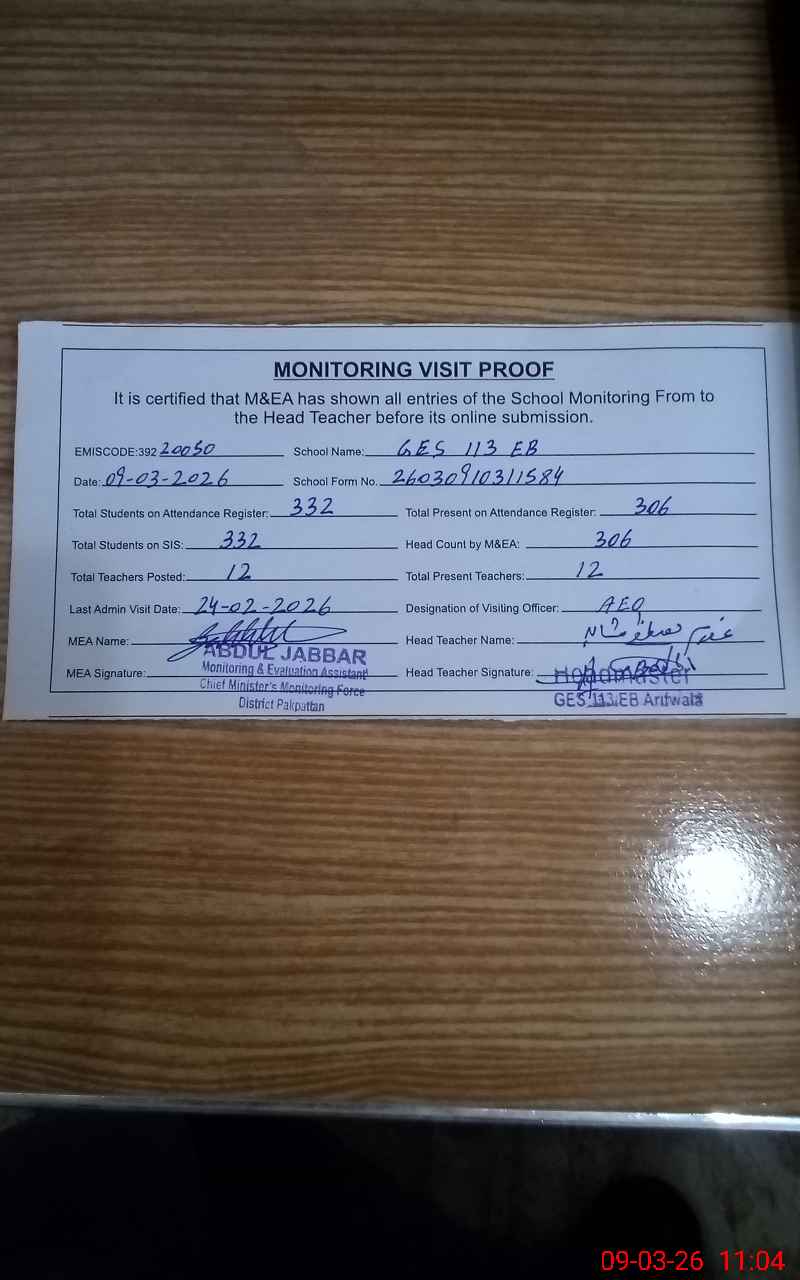 MONITORING VISIT PROOF
It is certified that M&EA has shown all entries of the School Monitoring From to
the Head Teacher before its online submission.
EMISCODE:392 20050 School Name: GES 113 EB
Date: 09-03-2026 School Form No. 26030910311584
Total Students on Attendance Register: 332 Total Present on Attendance Register: 306
Total Students on SIS: 332 Head Count by M&EA: 306
Total Teachers Posted: 12 Total Present Teachers: 12
Last Admin Visit Date: 24-02-2026 Designation of Visiting Officer: AEO
MEA Name: Head Teacher Name:
ABDUL JABBAR
MEA Signature: Monitoring & Evaluation Assistant Head Teacher Signature: Headmaster
Chief Minister's Monitoring Force
District Pakpattan GES 113/EB Arifwala
09-03-26 11:04